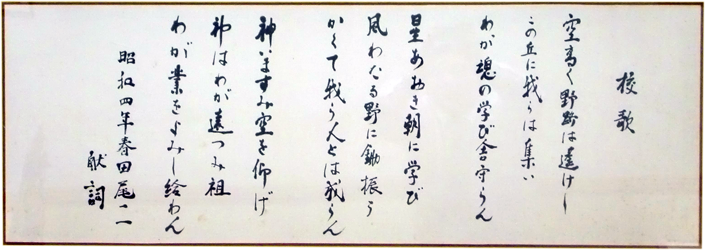 校歌
空高く野路は遠けし
この丘に我らは集い
わが魂の学び舎守らん
星あおき朝に学び
風わたる野に鋤振う
かくて我ら人とは成らん
神いますみ空を仰げ
神はわが遠つみ祖
わが業をよみし給わん
昭和四年春田尾一一
献詞